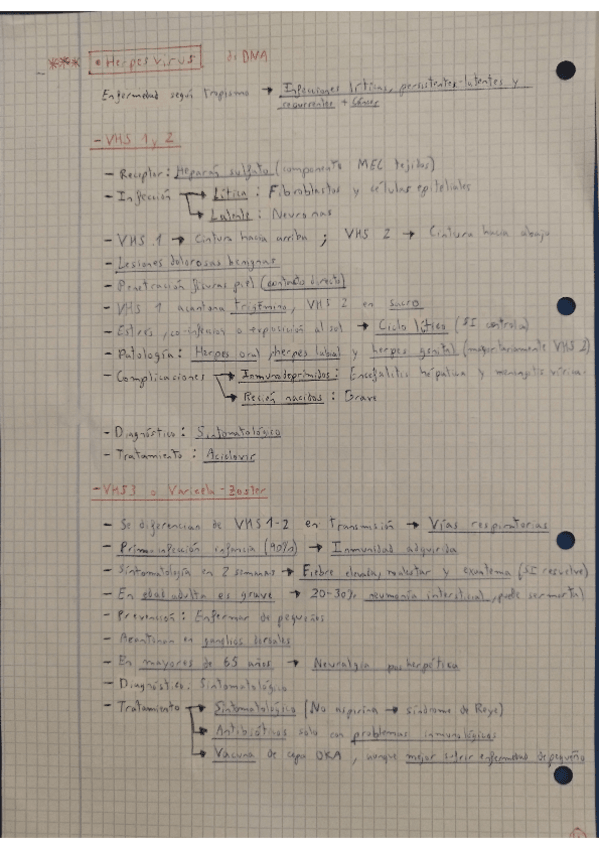 *** • Herpesvirus dsDNA
Enfermedad según tropismo → Infecciones líticas, persistentes-latentes y
recurrentes + Cáncer
- VHS 1 y 2
- Receptor: Heparán sulfato (componente MEC tejidos)
- Infección → Lítica: Fibroblastos y células epiteliales
→ Latente: Neuronas
- VHS 1 → Cintura hacia arriba; VHS 2 → Cintura hacia abajo
- Lesiones dolorosas benignas
- Penetración fisuras piel (contacto directo)
- VHS 1 acantona trigémino, VHS 2 en sacro
- Estrés, co-infección o exposición al sol → Ciclo lítico (SI controla)
- Patología: Herpes oral, herpes labial y herpes genital (mayoritariamente VHS 2)
- Complicaciones → Inmunodeprimidos: Encefalitis hepática y meningitis vírica.
→ Recién nacidos: Grave
- Diagnóstico: Sintomatológico
- Tratamiento: Aciclovir
- VHS3 o Varicela-Zoster
- Se diferencian de VHS 1-2 en transmisión → Vías respiratorias
- Primoinfección infancia (90%) → Inmunidad adquirida
- Sintomatología en 2 semanas → Fiebre elevada, malestar y exantema (SI resuelve)
- En edad adulta es grave → 20-30% neumonía intersticial, puede ser mortal)
- Prevención: Enfermar de pequeños
- Acantonan en ganglios dorsales
- En mayores de 65 años → Neuralgia postherpética
- Diagnóstico: Sintomatológico
- Tratamiento → Sintomatológico (No aspirina → síndrome de Reye)
→ Antibióticos solo con problemas inmunológicos
→ Vacuna de cepa OKA, aunque mejor sufrir enfermedad de pequeño